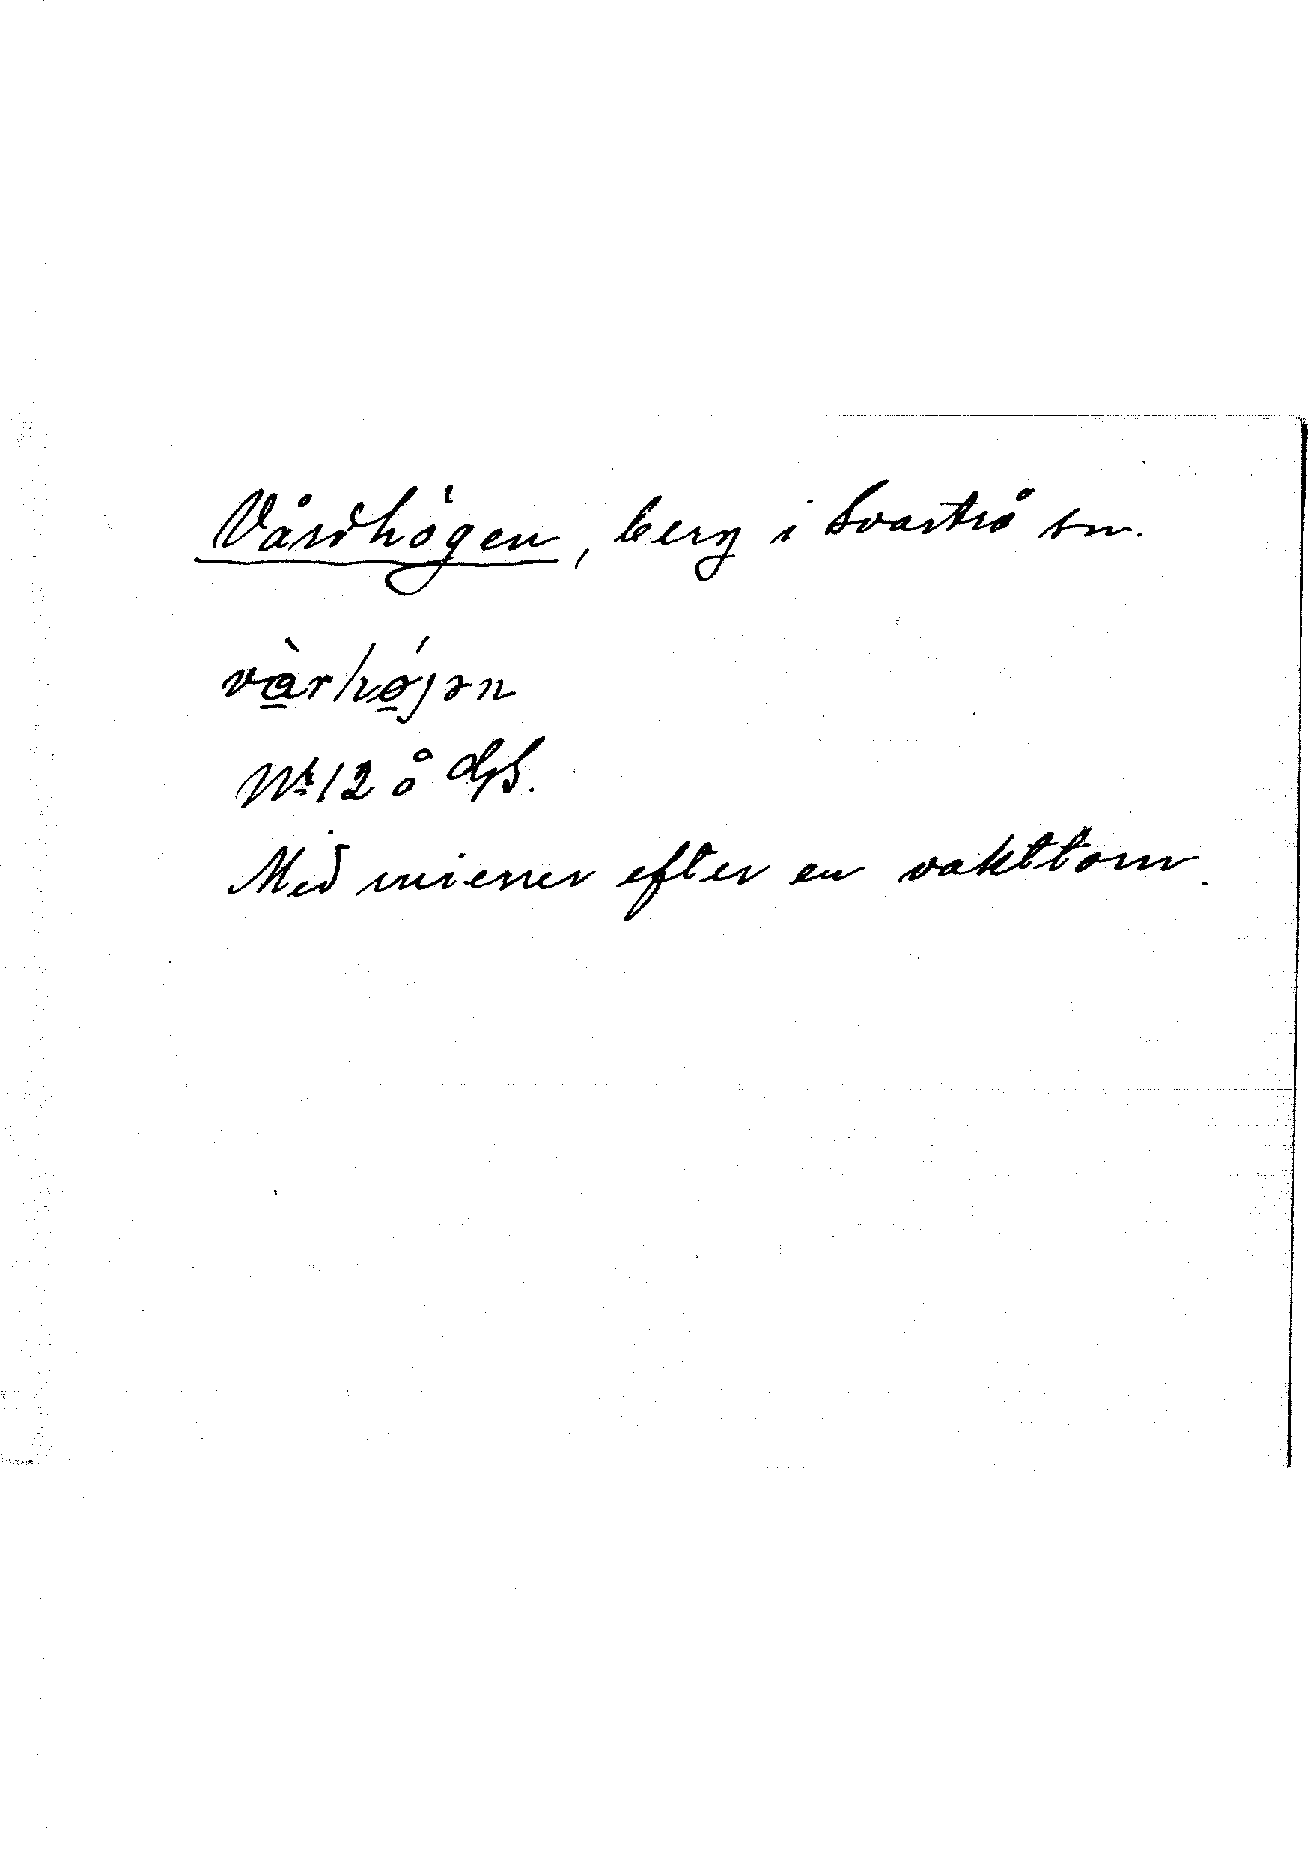 Vårdhögen, berg i Svartrå sn.
vàrhǿjən
Nr 12 å
Med ruiner efter en vakttorn.